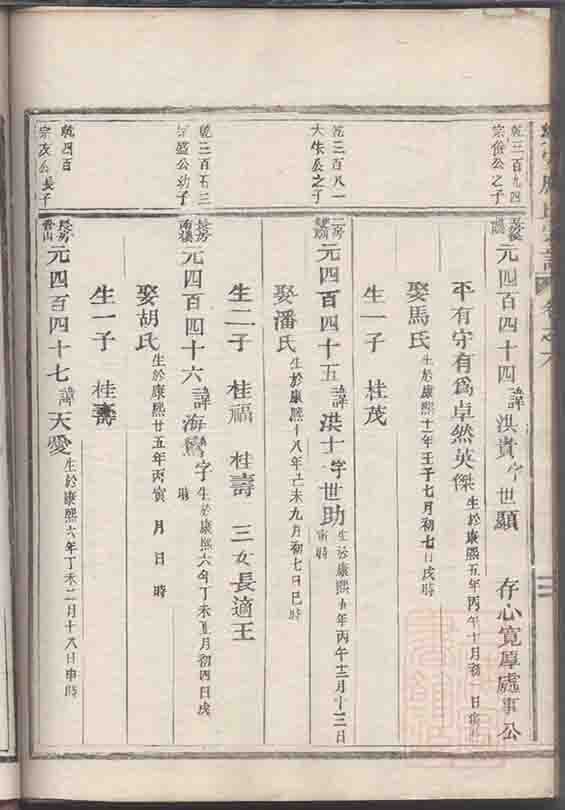 乾三百九四
宗俊公之子
元四百四十四諱洪貴字世顯 存心寬厚處事公
平有守有為卓然英傑生於康熙五年丙午十月初 日
娶馬氏生於康熙十一年壬子七月初七日戌時
生一子 桂茂
乾三百八一
大生公之子
二房
元四百四十五諱洪士字世助生於康熙五年丙午十二月十三日
時
娶潘氏生於康熙十八年己未九月初七日巳時
生二子 桂福 桂壽 三女長適王
乾三百石三
宗盛公幼子
長房
元四百四十六諱海鸞字 生於康熙六年丁未五月初四日戌
娶胡氏生於康熙廿五年丙寅 月 日 時
生一子 桂壽
乾四百
宗友公長子
長房
元四百四十七諱天愛生於康熙六年丁未二月十八日申時